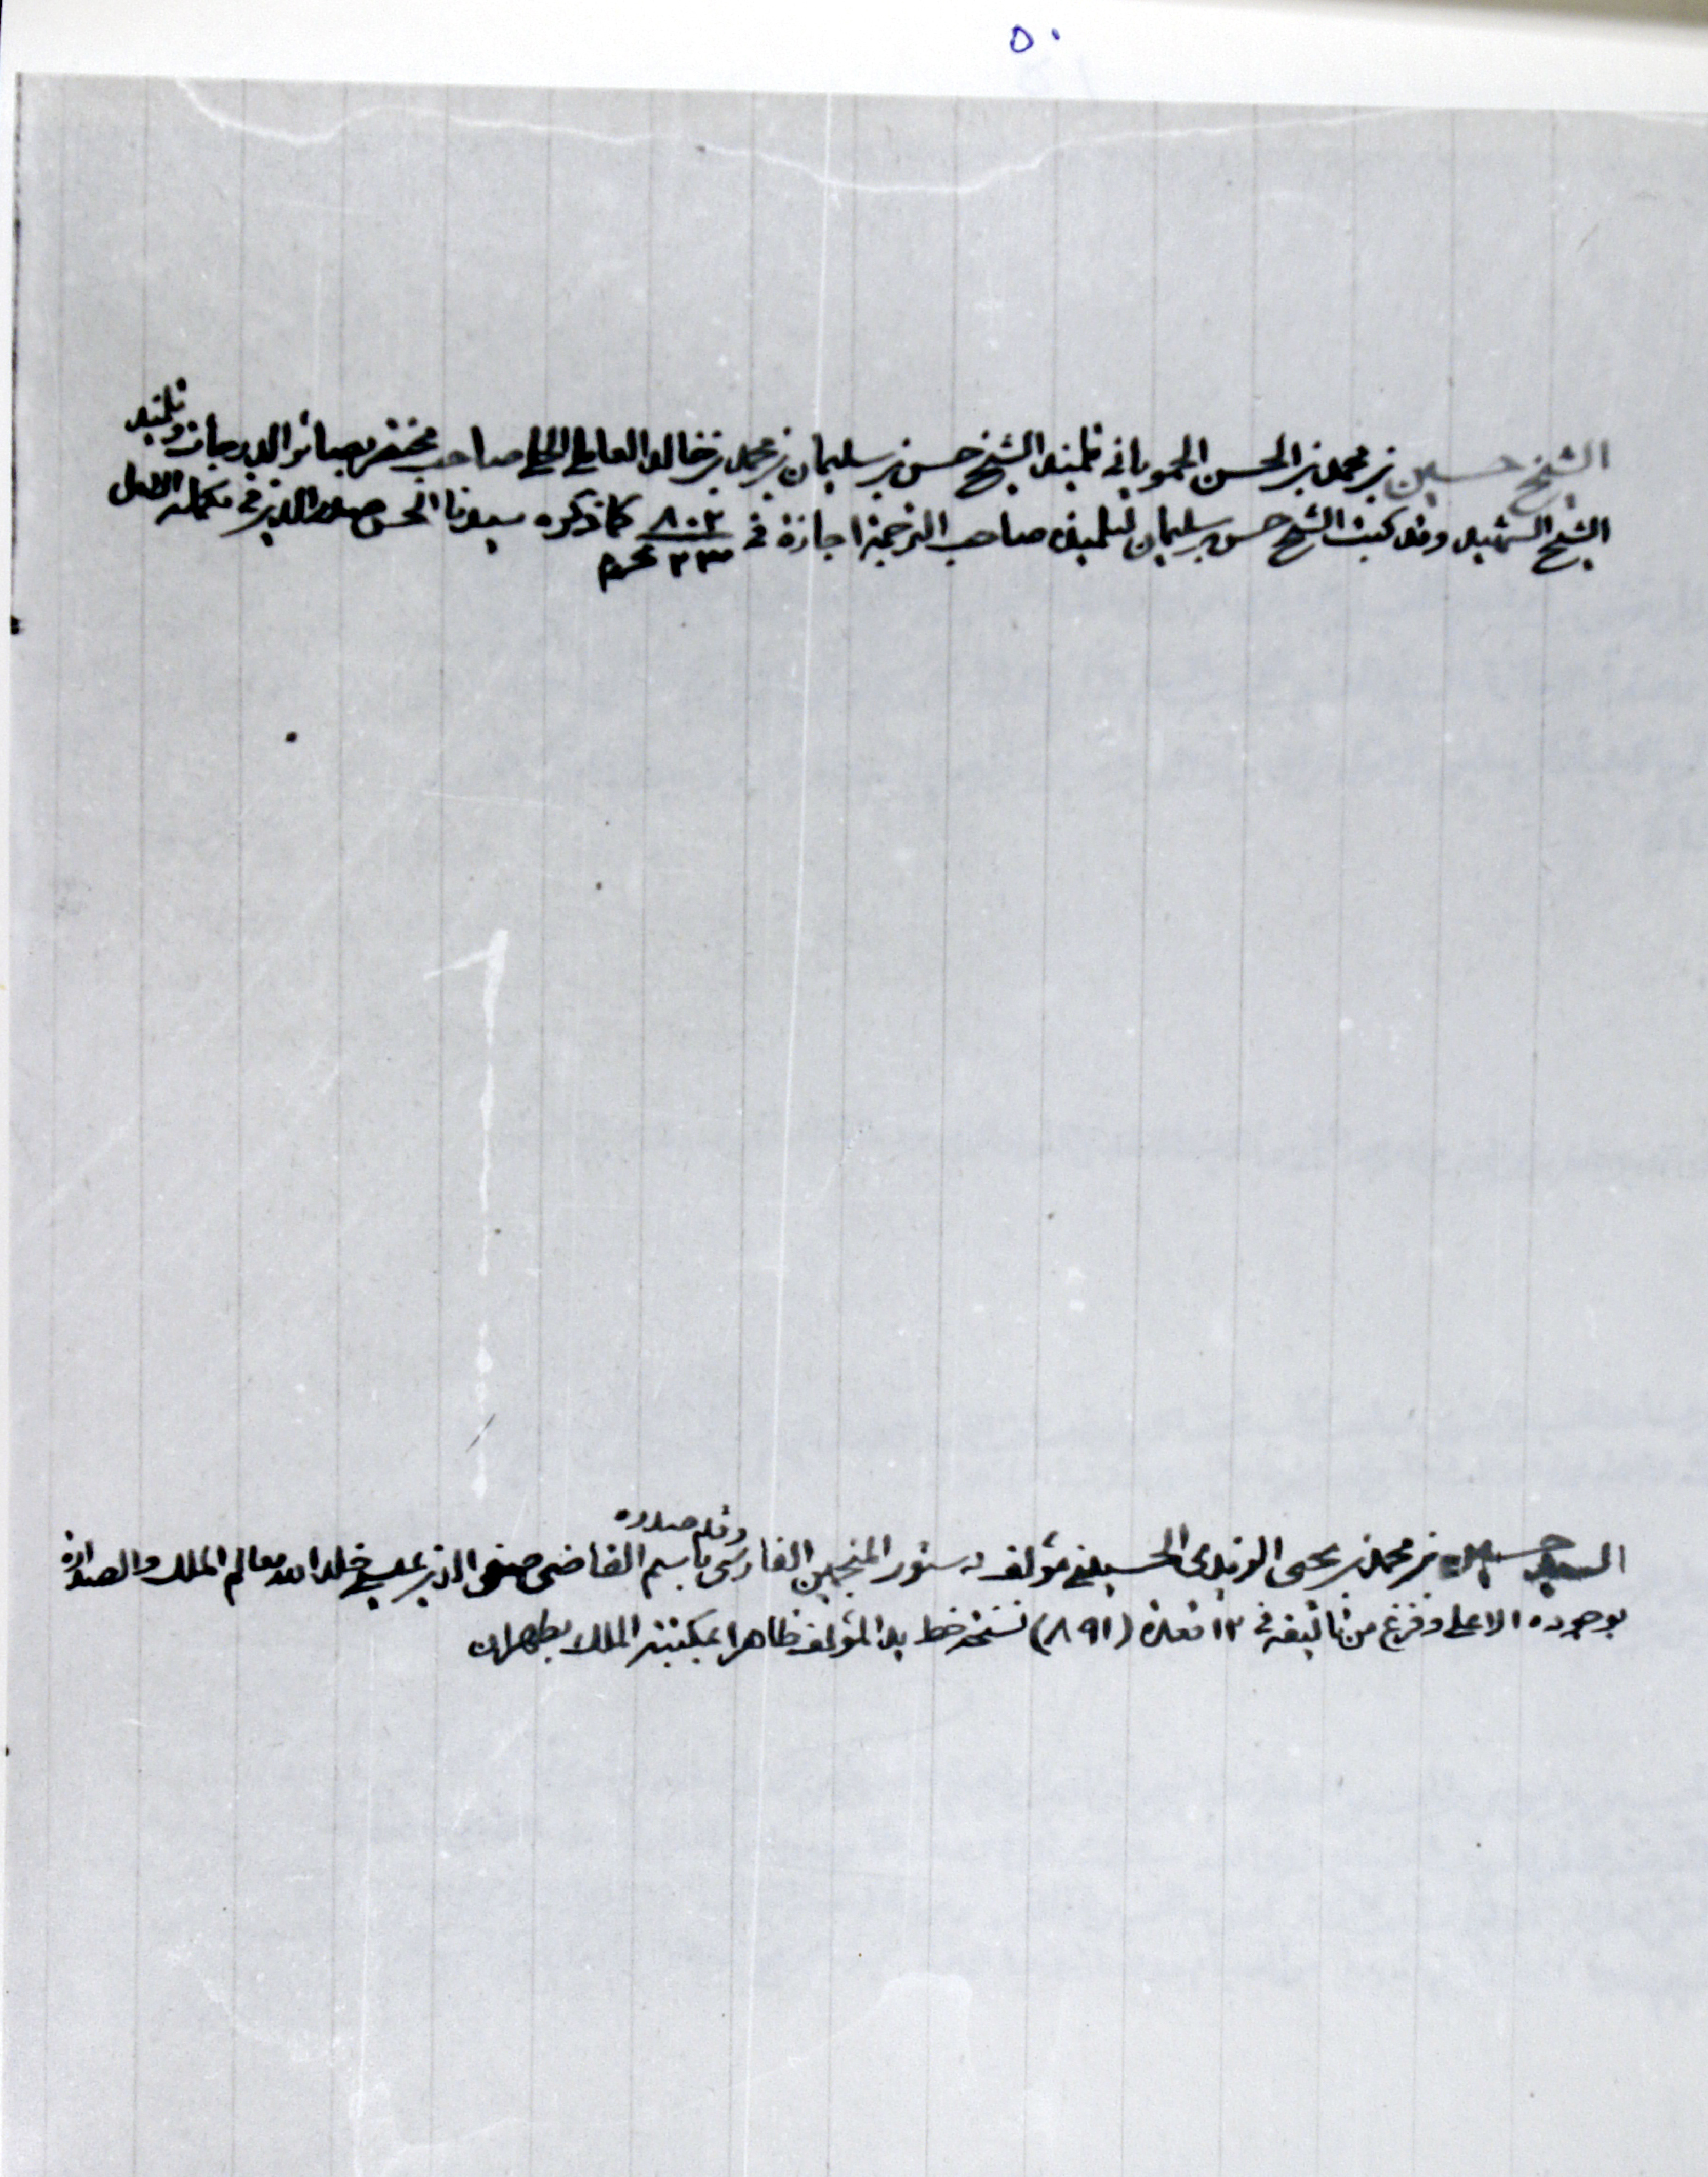 ٥٠
الشيخ حسين بن محمد بن الحسن الحموياني تلميذ الشيخ حسن بن سليمان بن محمد بن خالد العاملي الحلي صاحب مختصر بصائر الدرجات وتلميذ
الشيخ الشهيد وقد كتب الشيخ حسن بن سليمان لتلميذه صاحب الترجمة اجازة في ٨٠٢ كما ذكره سيدنا الحسن صدر الدين في تكملة الامل
٢٣ محرم
وقدم صدره
السيد حسين بن محمد بن يحيى الزيدي الحسيني مؤلف دستور المنجمين الفارسي باسم القاضي صفي الدين عيسى خلد الله معالم الملك والصدارة
بوجوده الاعلى وفرغ من تأليفه في ١٢ قعدة (٨٩١) نسخة خط يد المؤلف ظاهرا بمكتبة الملك بطهران